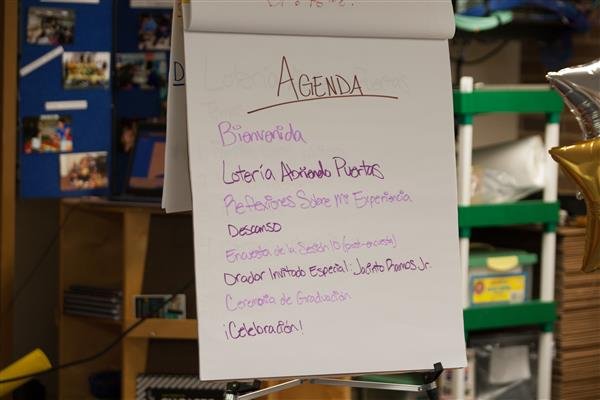 AGENDA
Bienvenida
Lotería Abriendo Puertas
Reflexiones Sobre Mi Experiencia
Descanso
Encuesta de la Sesión 10 (post-encuesta)
Orador Invitado Especial: Jacinto Ramos Jr.
Ceremonia de Graduación
¡Celebración!